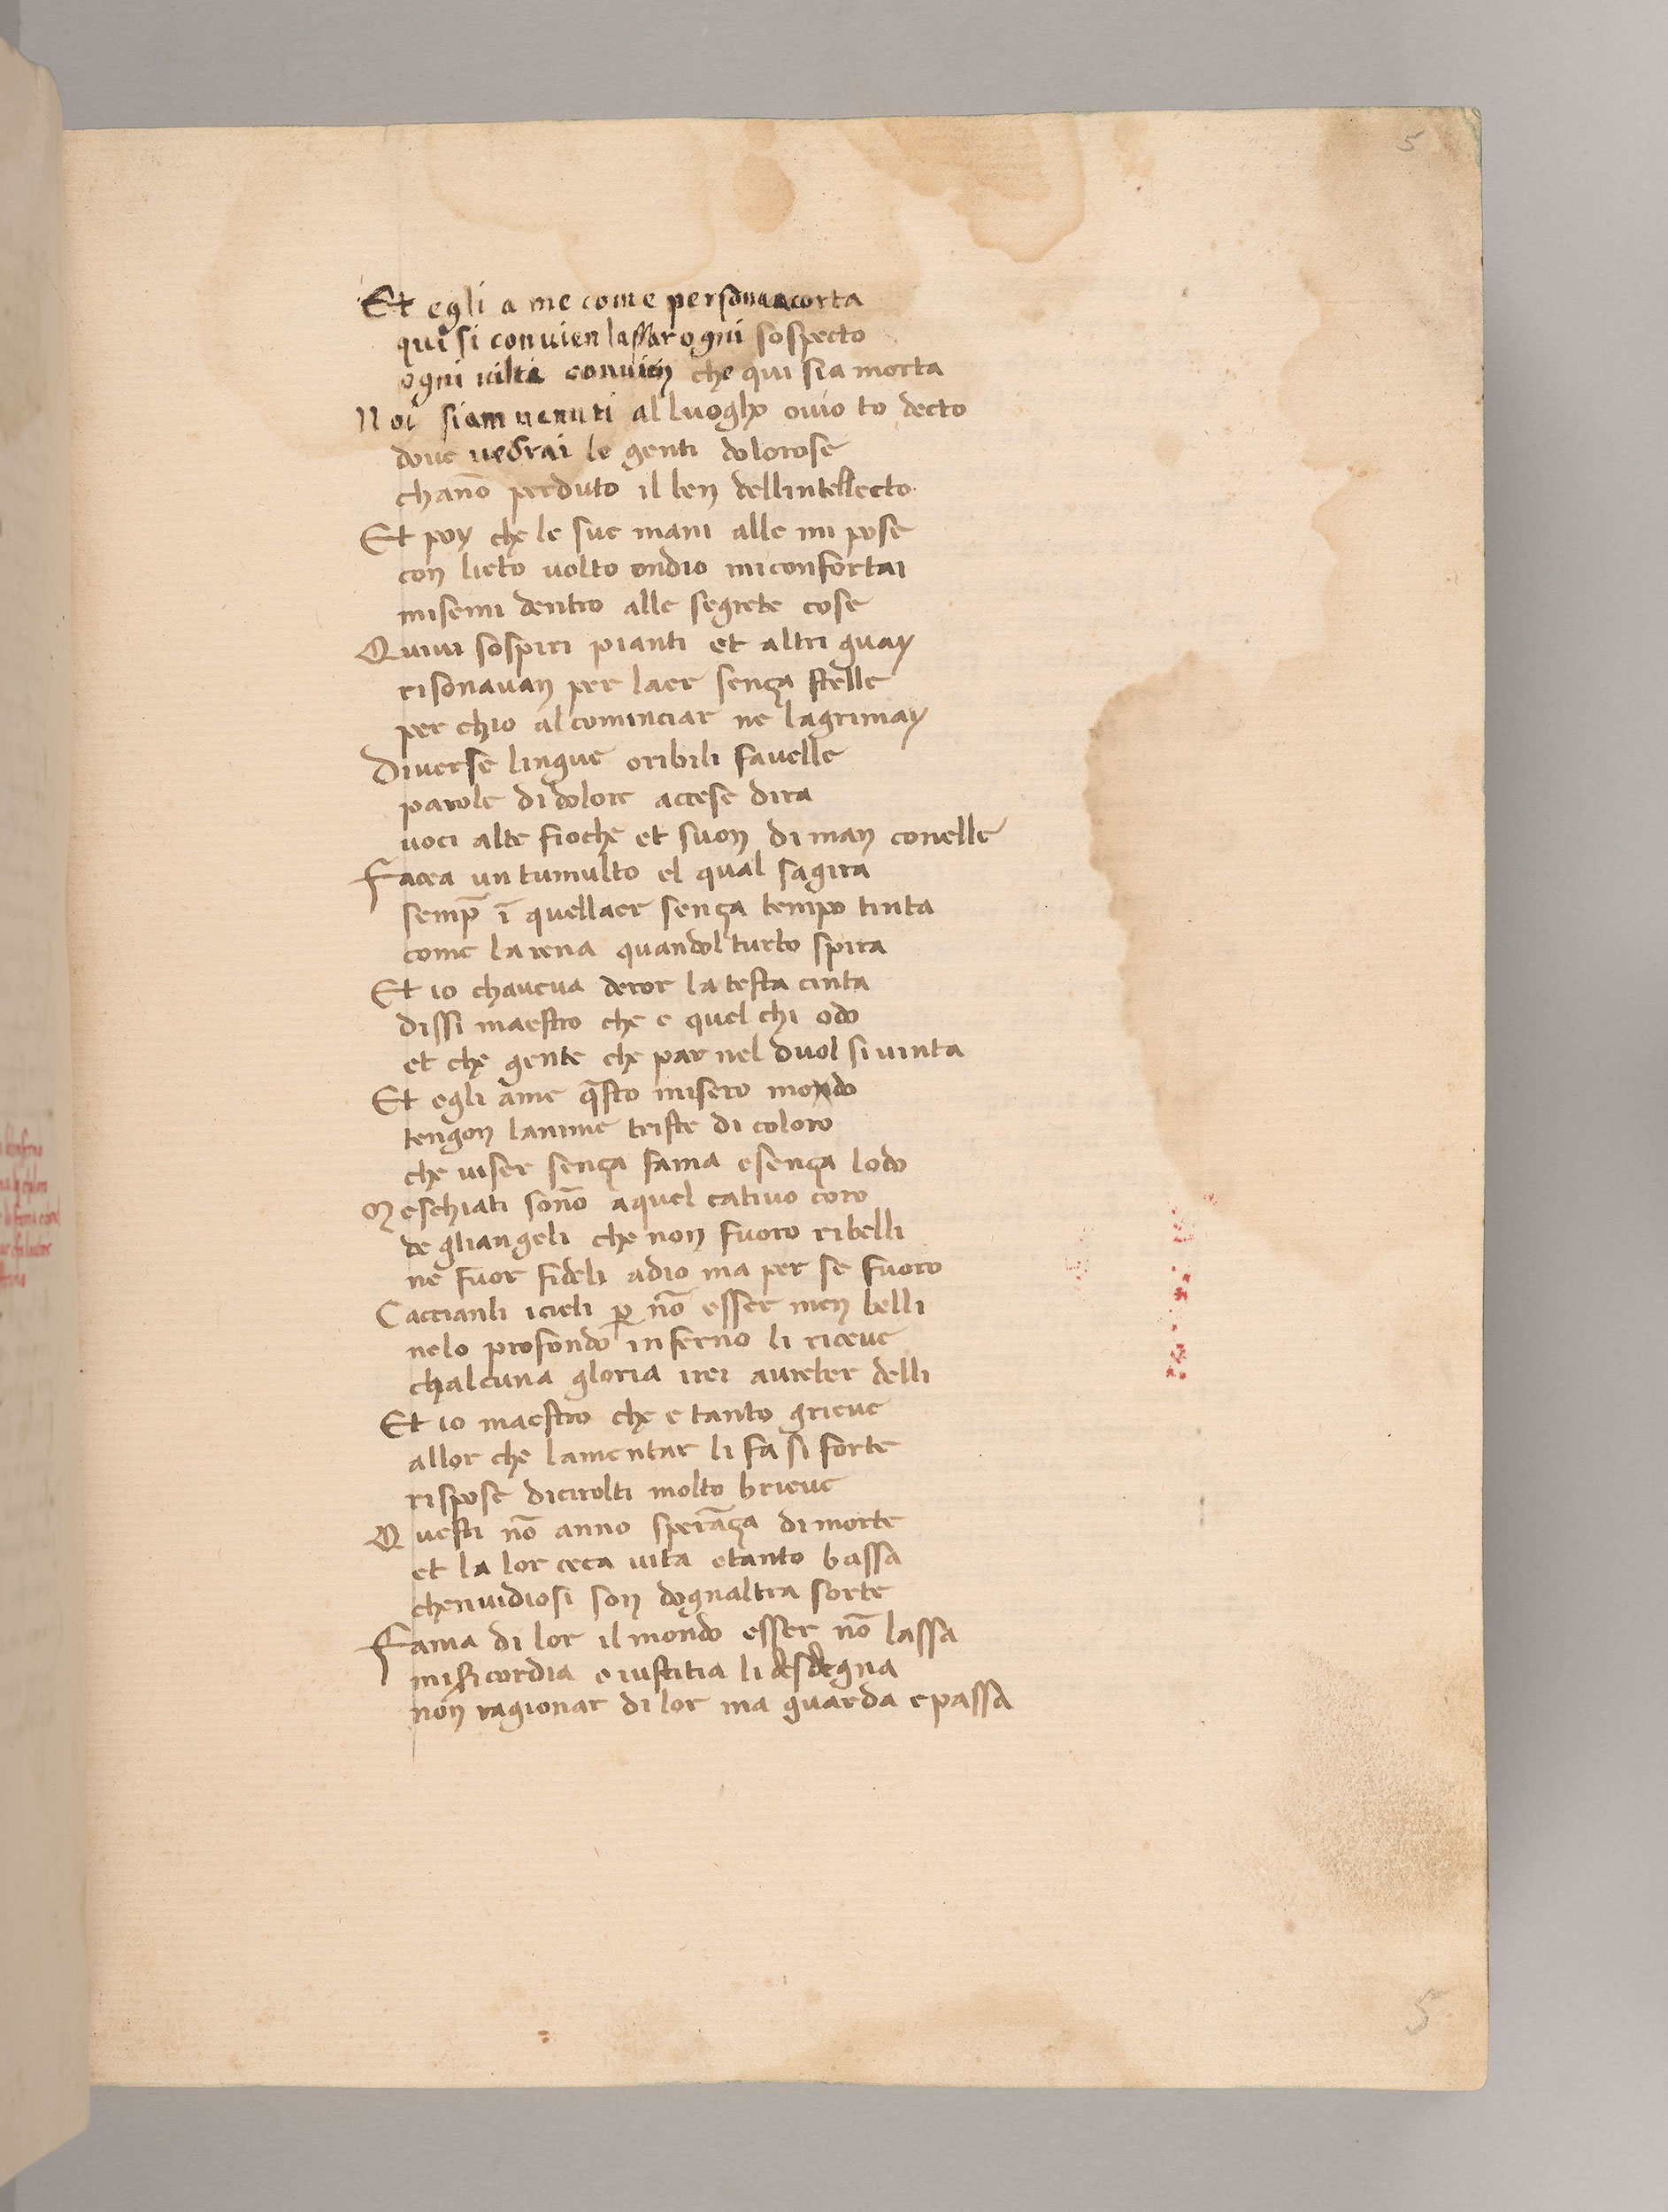 5
Et egli a me come persona acorta
qui si convien lassar ogni sospecto
ogni viltà convien che qui sia morta
Noi siam venuti al luogho ovio to decto
dove vedrai le genti dolorose
channo perduto il ben dellintellecto
Et poy che le sue mani alle mi pose
con lieto volto ondio miconfortai
misemi dentro alle segrete cose
Quivi sospiri pianti et altri guay
risonavan per laer sença stelle
per chio al cominciar ne lagrimay
Diverse lingue oribili favelle
parole di dolore accese dira
voci alte fioche et suon di man conelle
Facea un tumulto el qual sagira
semp̄ ī quellaer sença tempo tinta
come la rena quandol turbo spira
Et io chaveva deror la testa cinta
dissi maestro che e quel chi odo
et che gente che par nel duol si vinta
Et egli ame q̄sto misero mondo
tengon lanime triste di coloro
che viser sença fama esença lodo
Meschiati sono aquel cativo coro
de gliangeli che non fuoro ribelli
ne fuor fideli adio ma per se fuoro
Caccianli icieli p nō esser men belli
nelo profondo inferno li riceve
chalcuna gloria irei avreber delli
Et io maestro che e tanto grieve
allor che lamentar li fa si forte
rispose dicirolti molto brieve
Questi nō anno sperāça di morte
et la lor ceca vita etanto bassa
chenvidiosi son dognaltra sorte
Fama di lor il mondo esser nō lassa
misericordia e iustitia li desdegna
non ragionar di lor ma guarda epassa
5